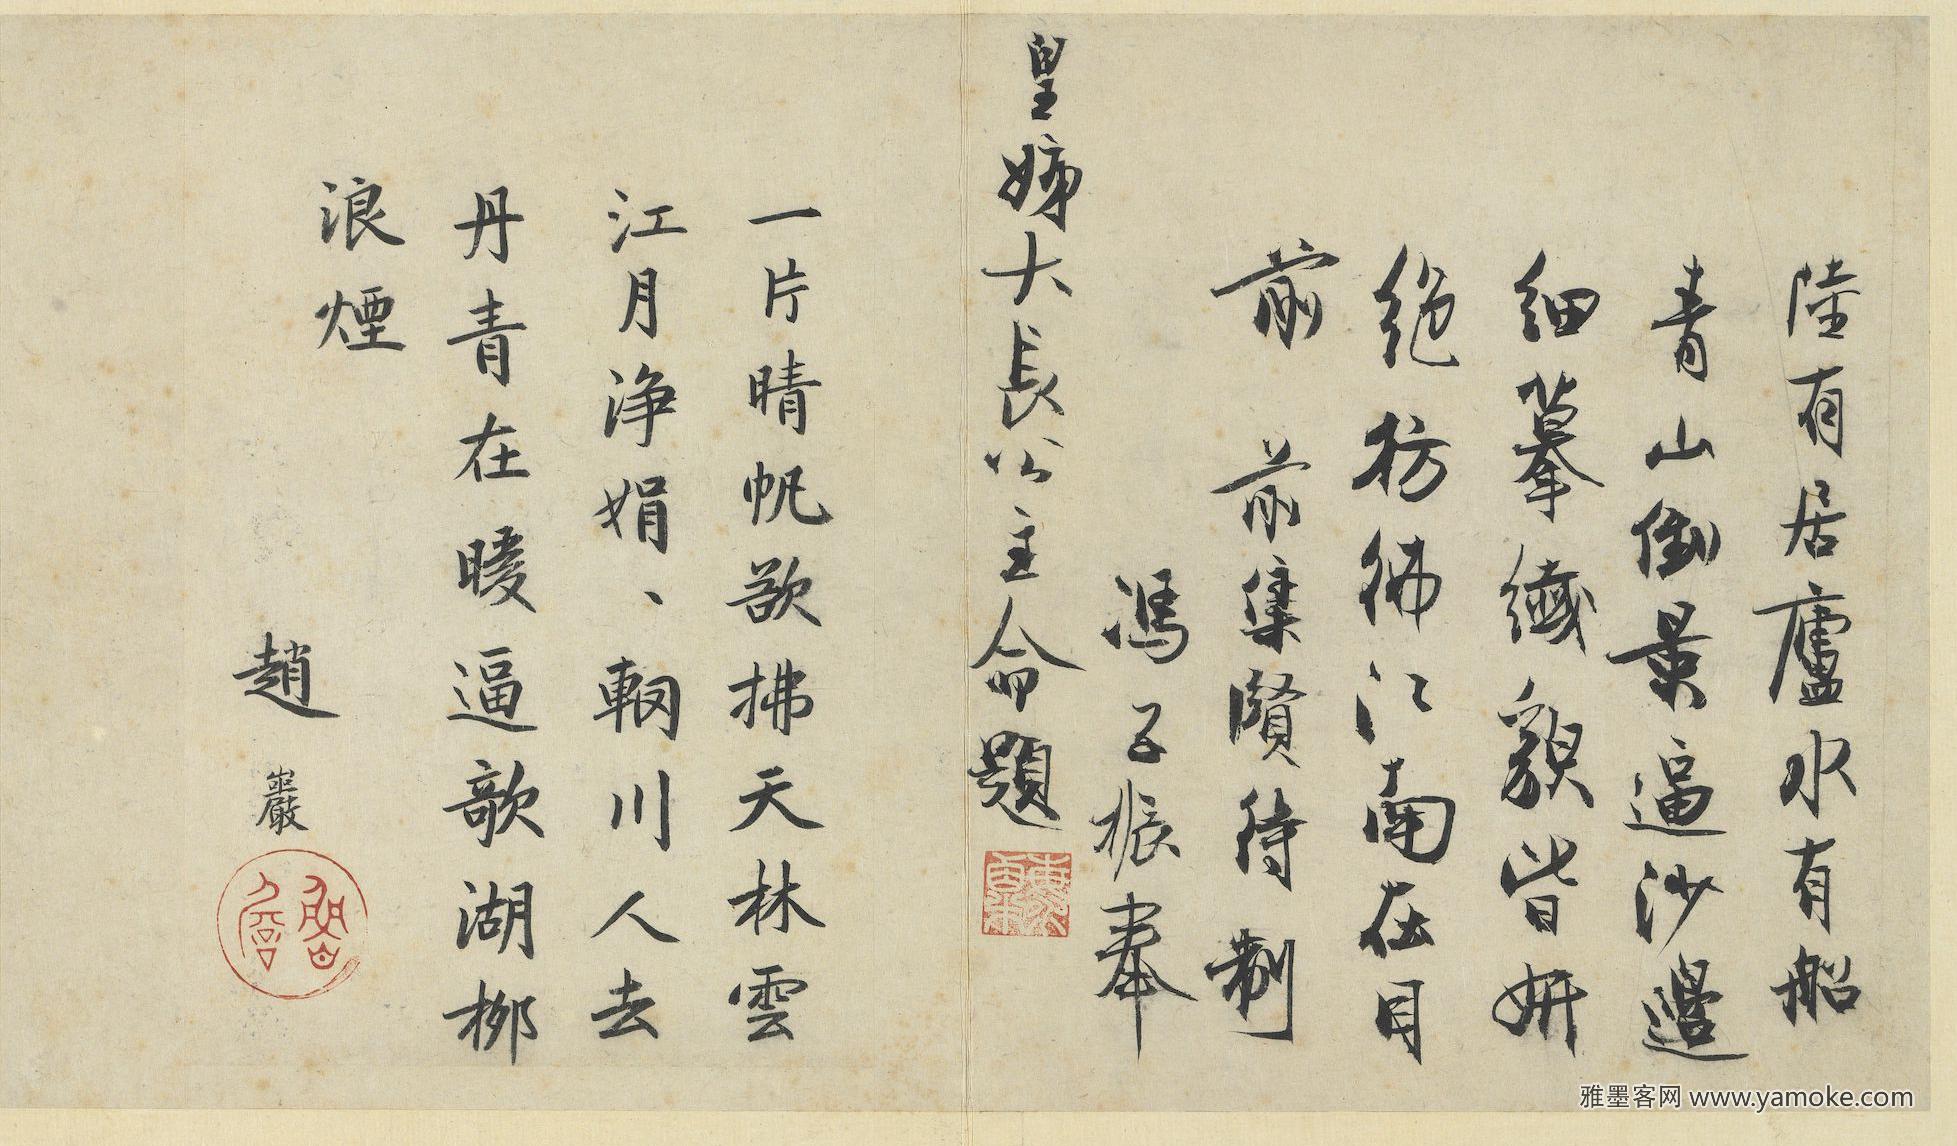 陸有居廬水有船
青山倒景逼沙邊
細摹纎貌皆妍
絶彷彿江南在目
前
前集賢待制
馮子振奉
皇姊大長公主命題
一片晴帆欲拂天林雲
江月浄娟、輞川人去
丹青在暖逼歌湖柳
浪煙
趙
巖
雅墨客网 www.yamoke.com